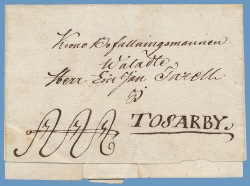 Krono Befallningsmannen
Wäladle
Herr Eric Jan
TOSARBY.